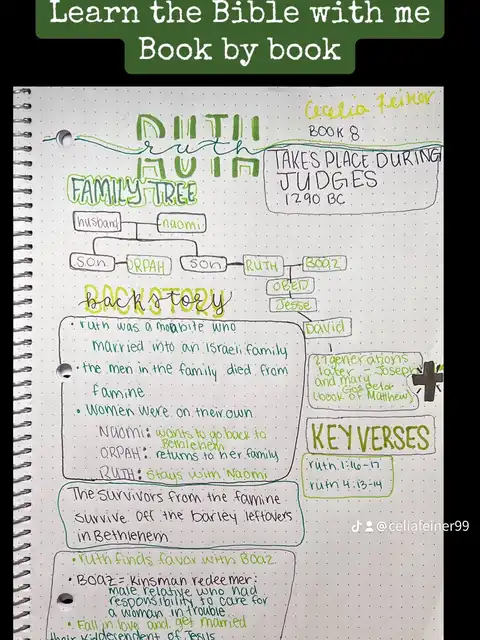 Learn the Bible with me
Book by book
Cecelia Feiner
RUTH
ruth
BOOK 8
TAKES PLACE DURING
JUDGES
1290 BC
FAMILY TREE
husband
naomi
son
ORPAH
son
RUTH
BOAZ
OBED
Jesse
David
27 generations
later - Joseph
and mary
(book of Matthew)
BACKSTORY
backstory
• ruth was a moabite who
married into an Israeli family
• the men in the family died from
famine
• women were on their own
Naomi: wants to go back to
Bethlehem
ORPAH: returns to her family
RUTH: stays with Naomi
KEY VERSES
ruth 1:16-17
ruth 4:13-14
The survivors from the famine
survive off the barley leftovers
in Bethlehem
@cellafeiner99
• ruth finds favor with Boaz
• BOAZ = kinsman redeemer:
male relative who had
responsibility to care for
a woman in trouble
• Fall in love and get married
their kiddependent of Jesus